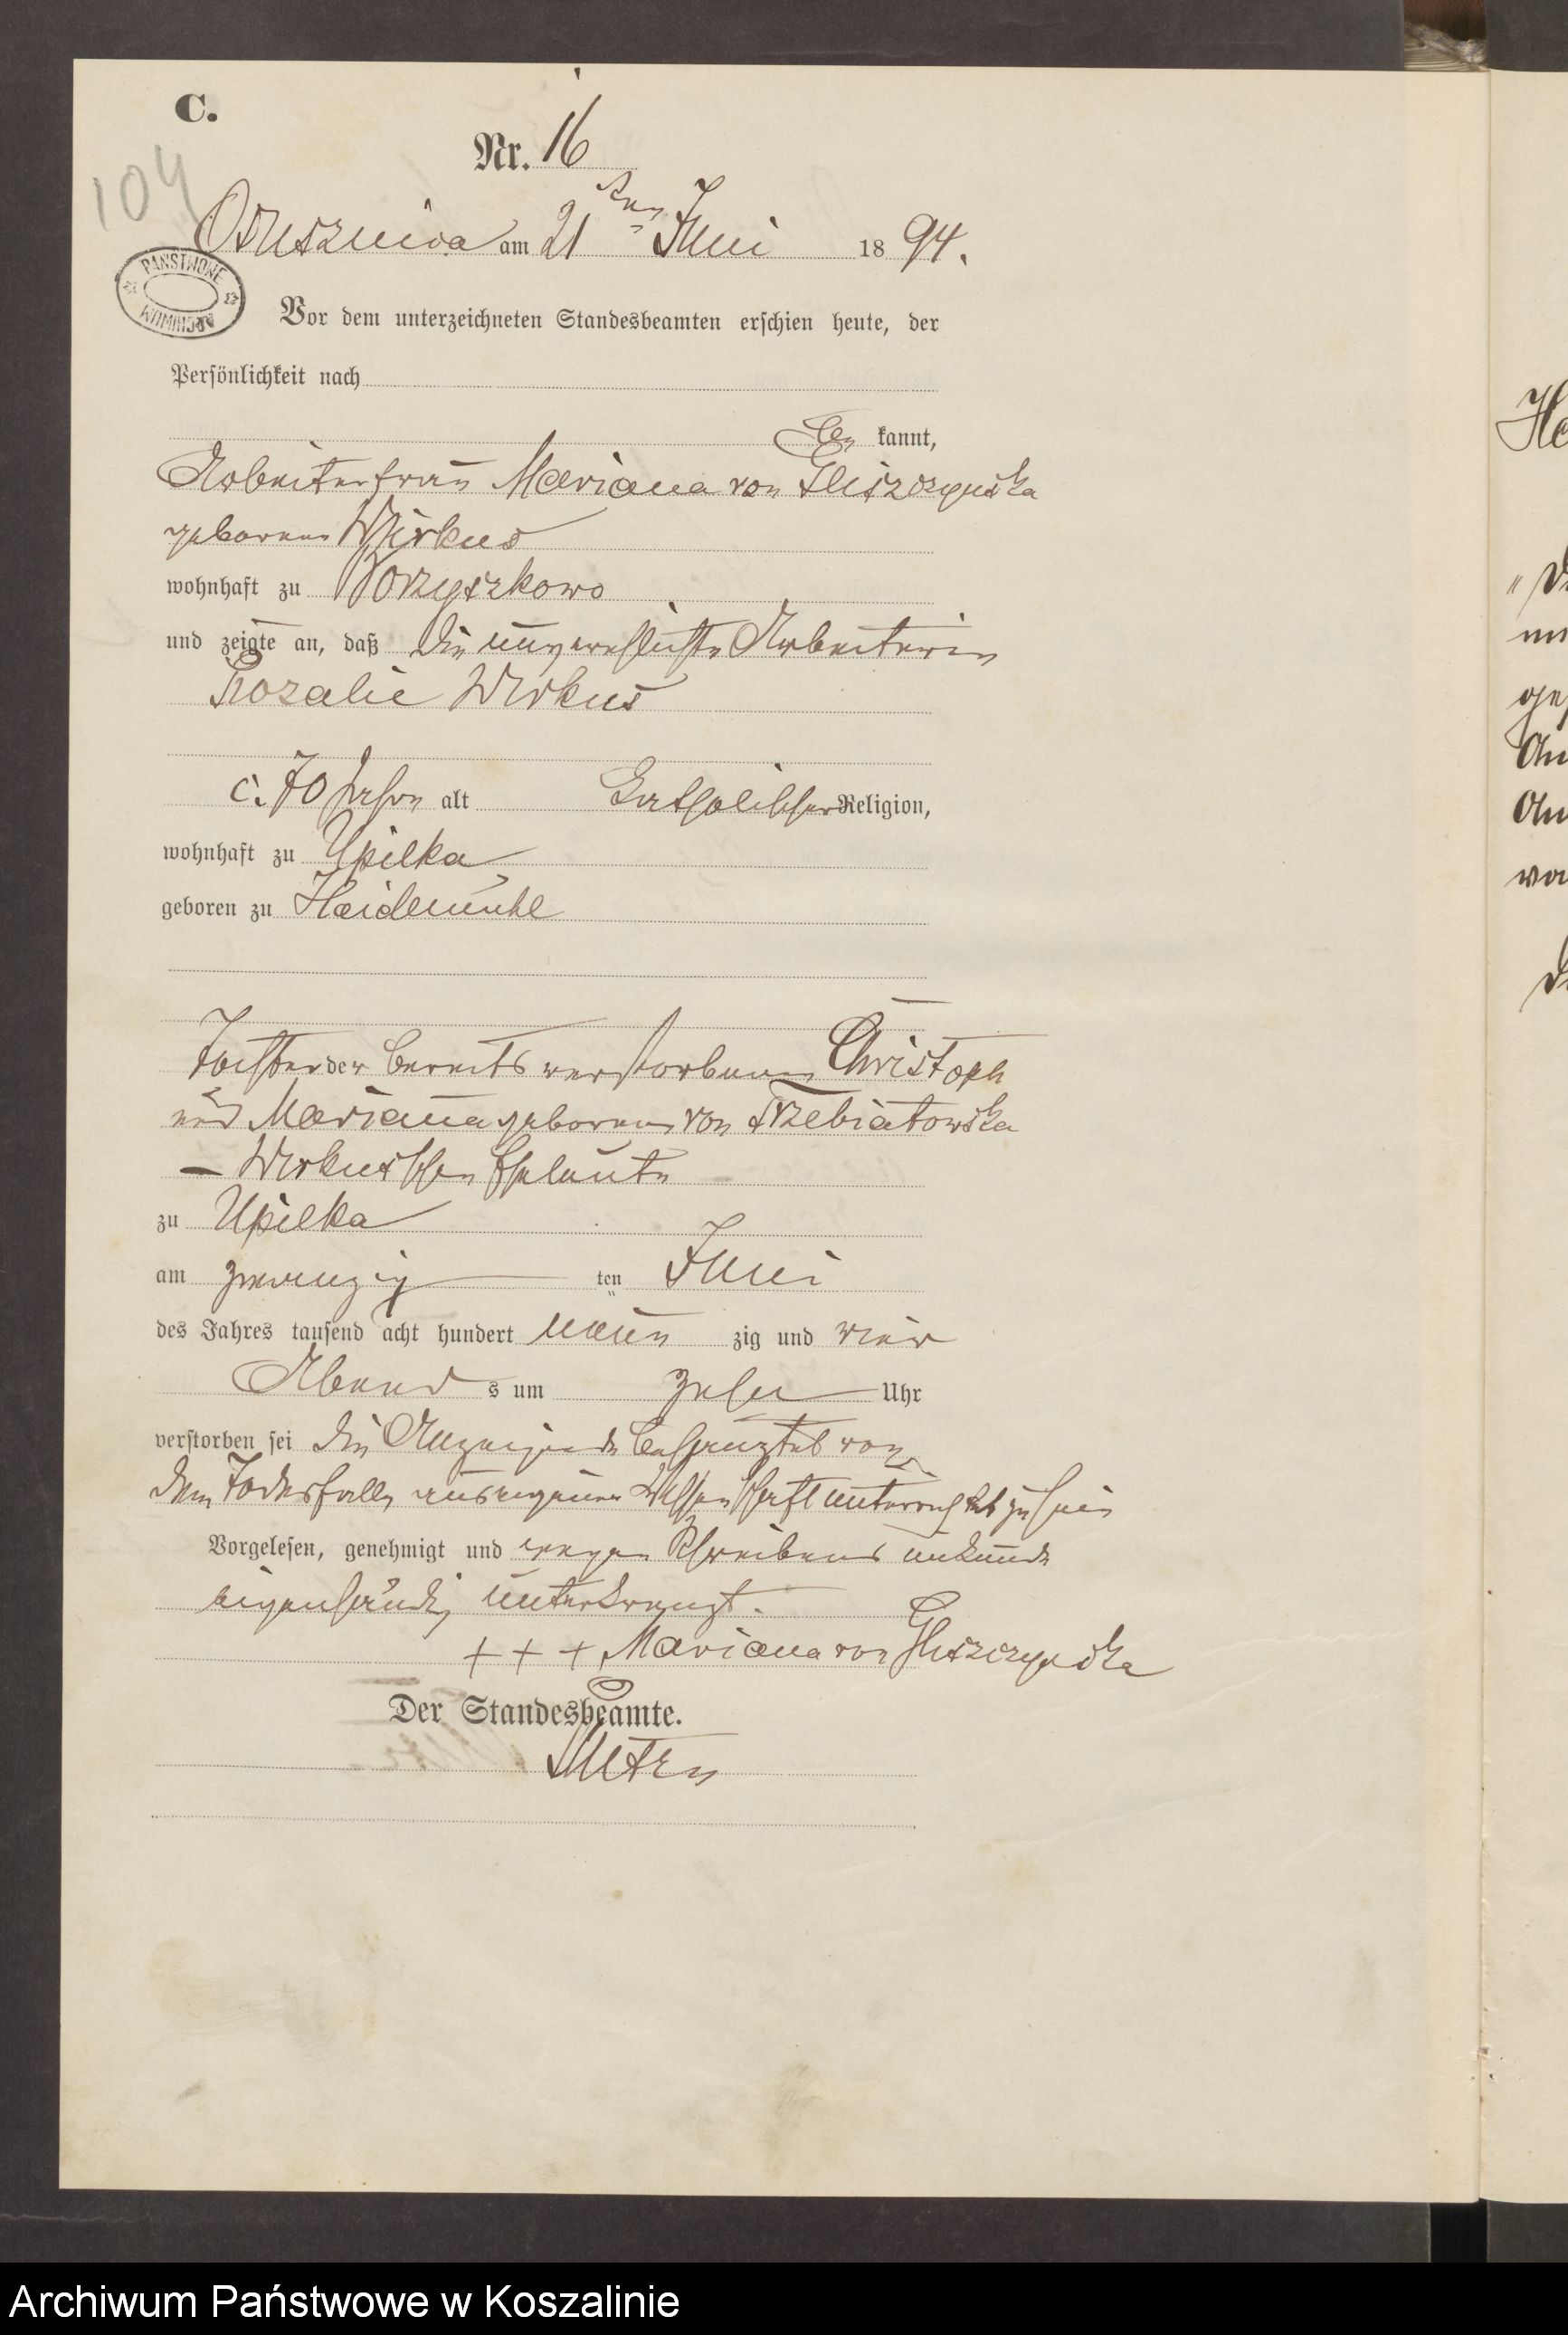 C.
Nr. 16
104
Osuszniça am 21ten Juni 1894.
PAŃSTWOWE ARCHIWUM
Vor dem unterzeichneten Standesbeamten erschien heute, der
Persönlichkeit nach
be kannt,
Arbeiterfrau Mariana von Gliszczynska
geborene Wirkus
wohnhaft zu Borzyszkowo
und zeigte an, daß die unverehelichte Arbeiterin
Rozalie Wirkus
c. 70 Jahre alt katholischer Religion,
wohnhaft zu Upilka
geboren zu Heidemühl
Tochter der bereits verstorbenen Christoph
und Mariana geborene von Trzebiatowska
– Wirkusschen Eheleute
zu Upilka
am zwanzig ten Juni
des Jahres tausend acht hundert neun zig und vier
Abend s um zehn Uhr
verstorben sei die Anzeigende von
dem Todesfalle aus eigener Wissenschaft unterrichtet zu sein
Vorgelesen, genehmigt und wegen Schreibens unkunde
eigenhändig unterkreuzt.
+ + + Mariana von Gliszczynska
Der Standesbeamte.
He
Archiwum Państwowe w Koszalinie